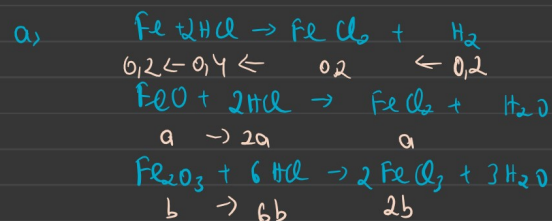 a, Fe + 2HCl → FeCl₂ + H₂
0,2 ← 0,4 ← 0,2 ← 0,2
FeO + 2HCl → FeCl₂ + H₂O
a → 2a a
Fe₂O₃ + 6 HCl → 2 FeCl₃ + 3H₂O
b → 6b 2b